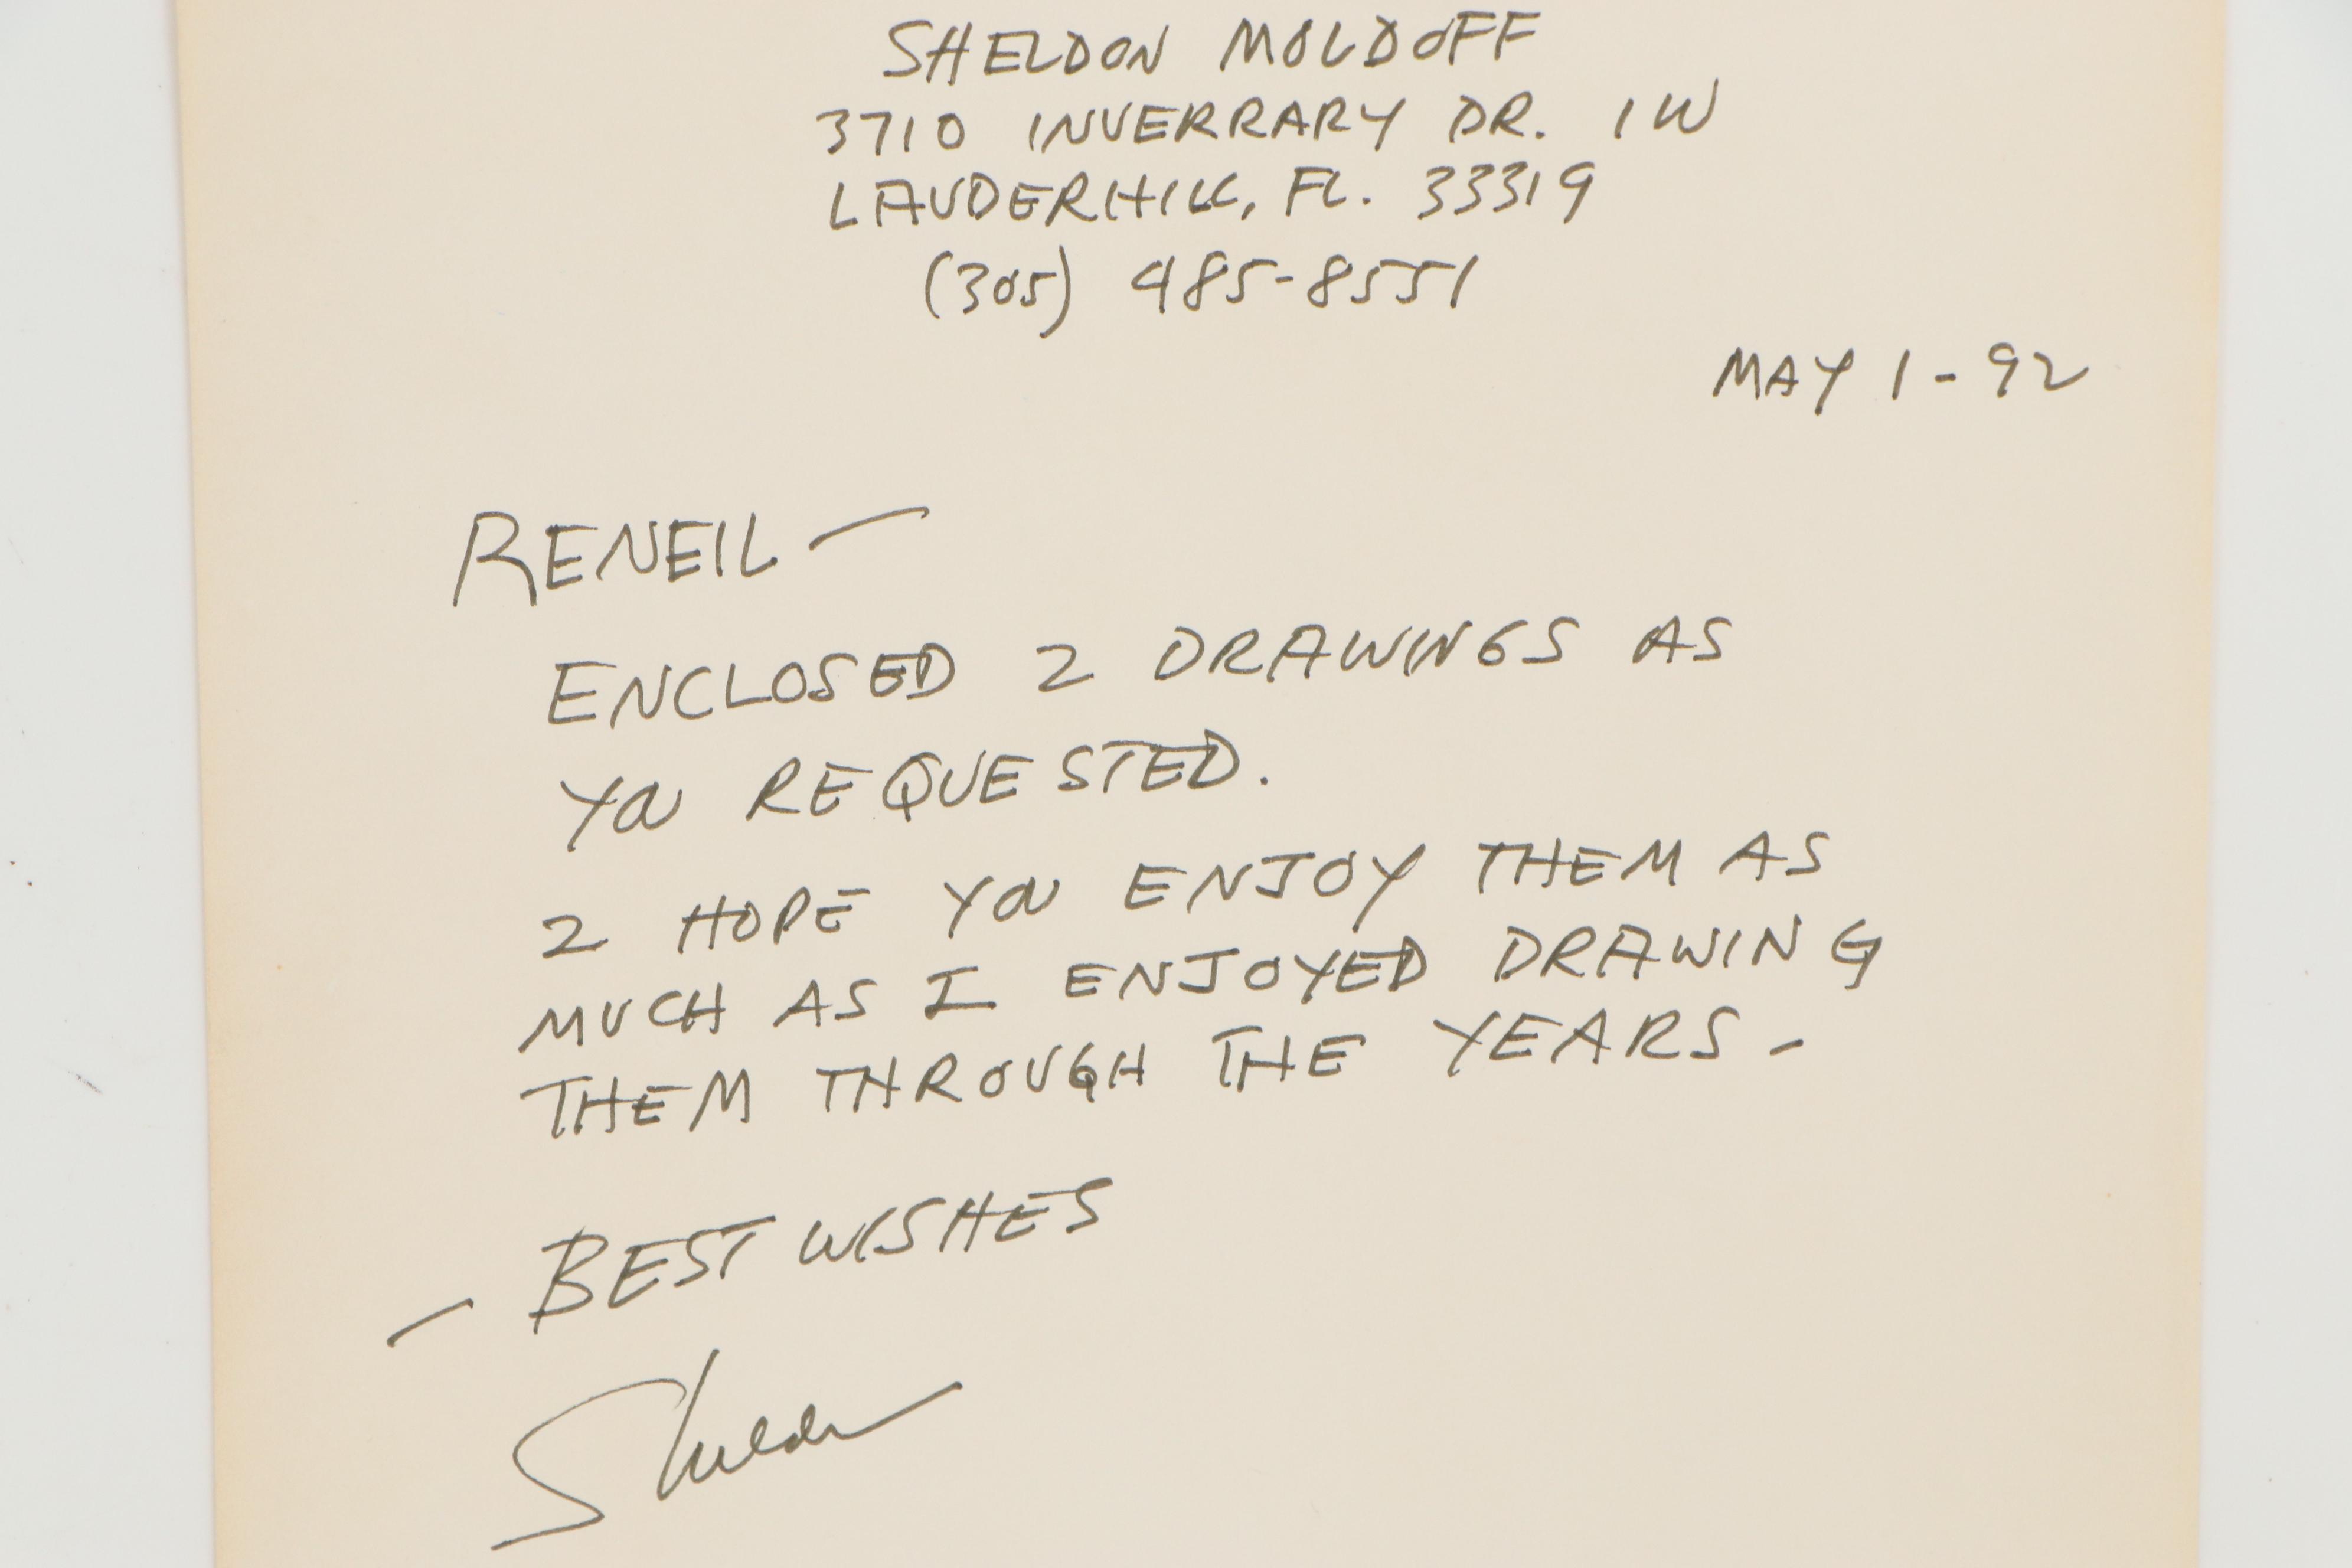 SHELDON MOLDOFF
3710 INVERRARY DR. 1W
LAUDERHILL, FL. 33319
(305) 485-8551
MAY 1-92
RENEIL —
ENCLOSED 2 DRAWINGS AS
YOU REQUESTED.
I HOPE YOU ENJOY THEM AS
MUCH AS I ENJOYED DRAWING
THEM THROUGH THE YEARS -
- BEST WISHES
Sheldon